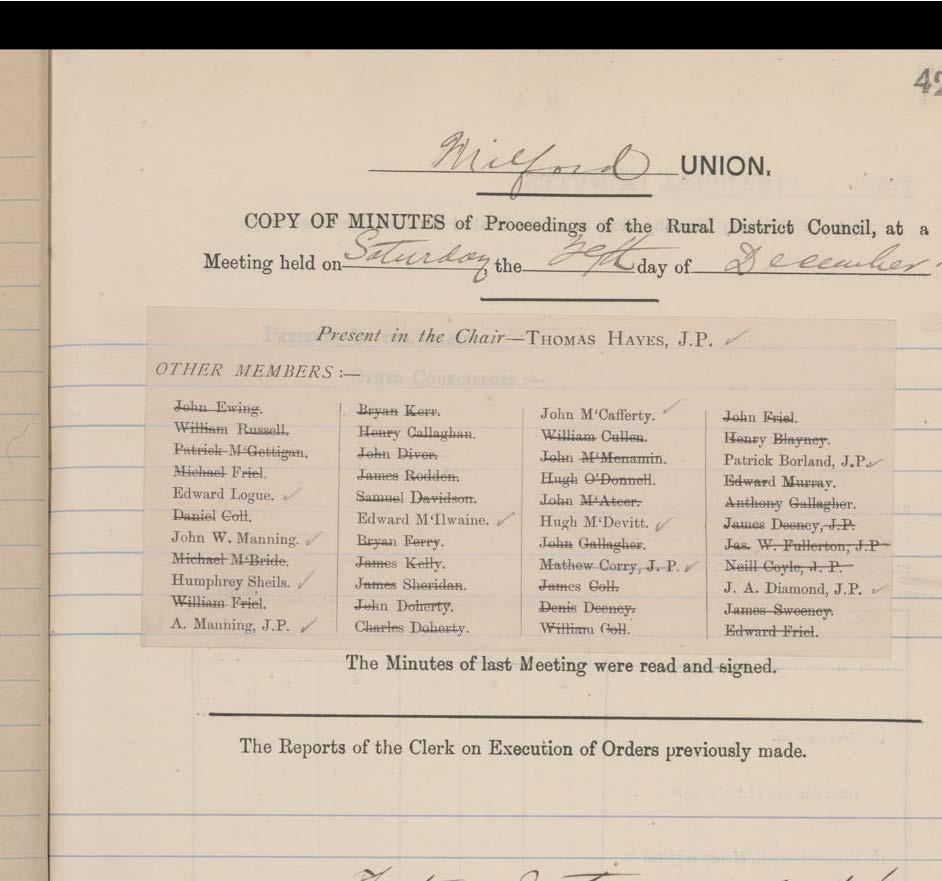 42
Milford UNION.
COPY OF MINUTES of Proceedings of the Rural District Council, at a
Meeting held on Saturday the day of December
Present in the Chair—THOMAS HAYES, J.P.
OTHER MEMBERS :—
John Ewing.
William Russell.
Patrick M‘Gettigan.
Michael Friel.
Edward Logue.
Daniel Coll.
John W. Manning.
Michael M‘Bride.
Humphrey Sheils.
William Friel.
A. Manning, J.P.
Bryan Kerr.
Henry Callaghan.
John Diver.
James Rodden.
Samuel Davidson.
Edward M‘Ilwaine.
Bryan Ferry.
James Kelly.
James Sheridan.
John Doherty.
Charles Doherty.
John M‘Cafferty.
William Cullen.
John M‘Menamin.
Hugh O’Donnell.
John M‘Ateer.
Hugh M‘Devitt.
John Gallagher.
Mathew Corry, J. P.
James Coll.
Denis Deeney.
William Coll.
John Friel.
Henry Blayney.
Patrick Borland, J.P.
Edward Murray.
Anthony Gallagher.
James Deeney, J.P.
Jas. W. Fullerton, J.P
Neill Coyle, J. P.
J. A. Diamond, J.P.
James Sweeney.
Edward Friel.
The Minutes of last Meeting were read and signed.
The Reports of the Clerk on Execution of Orders previously made.